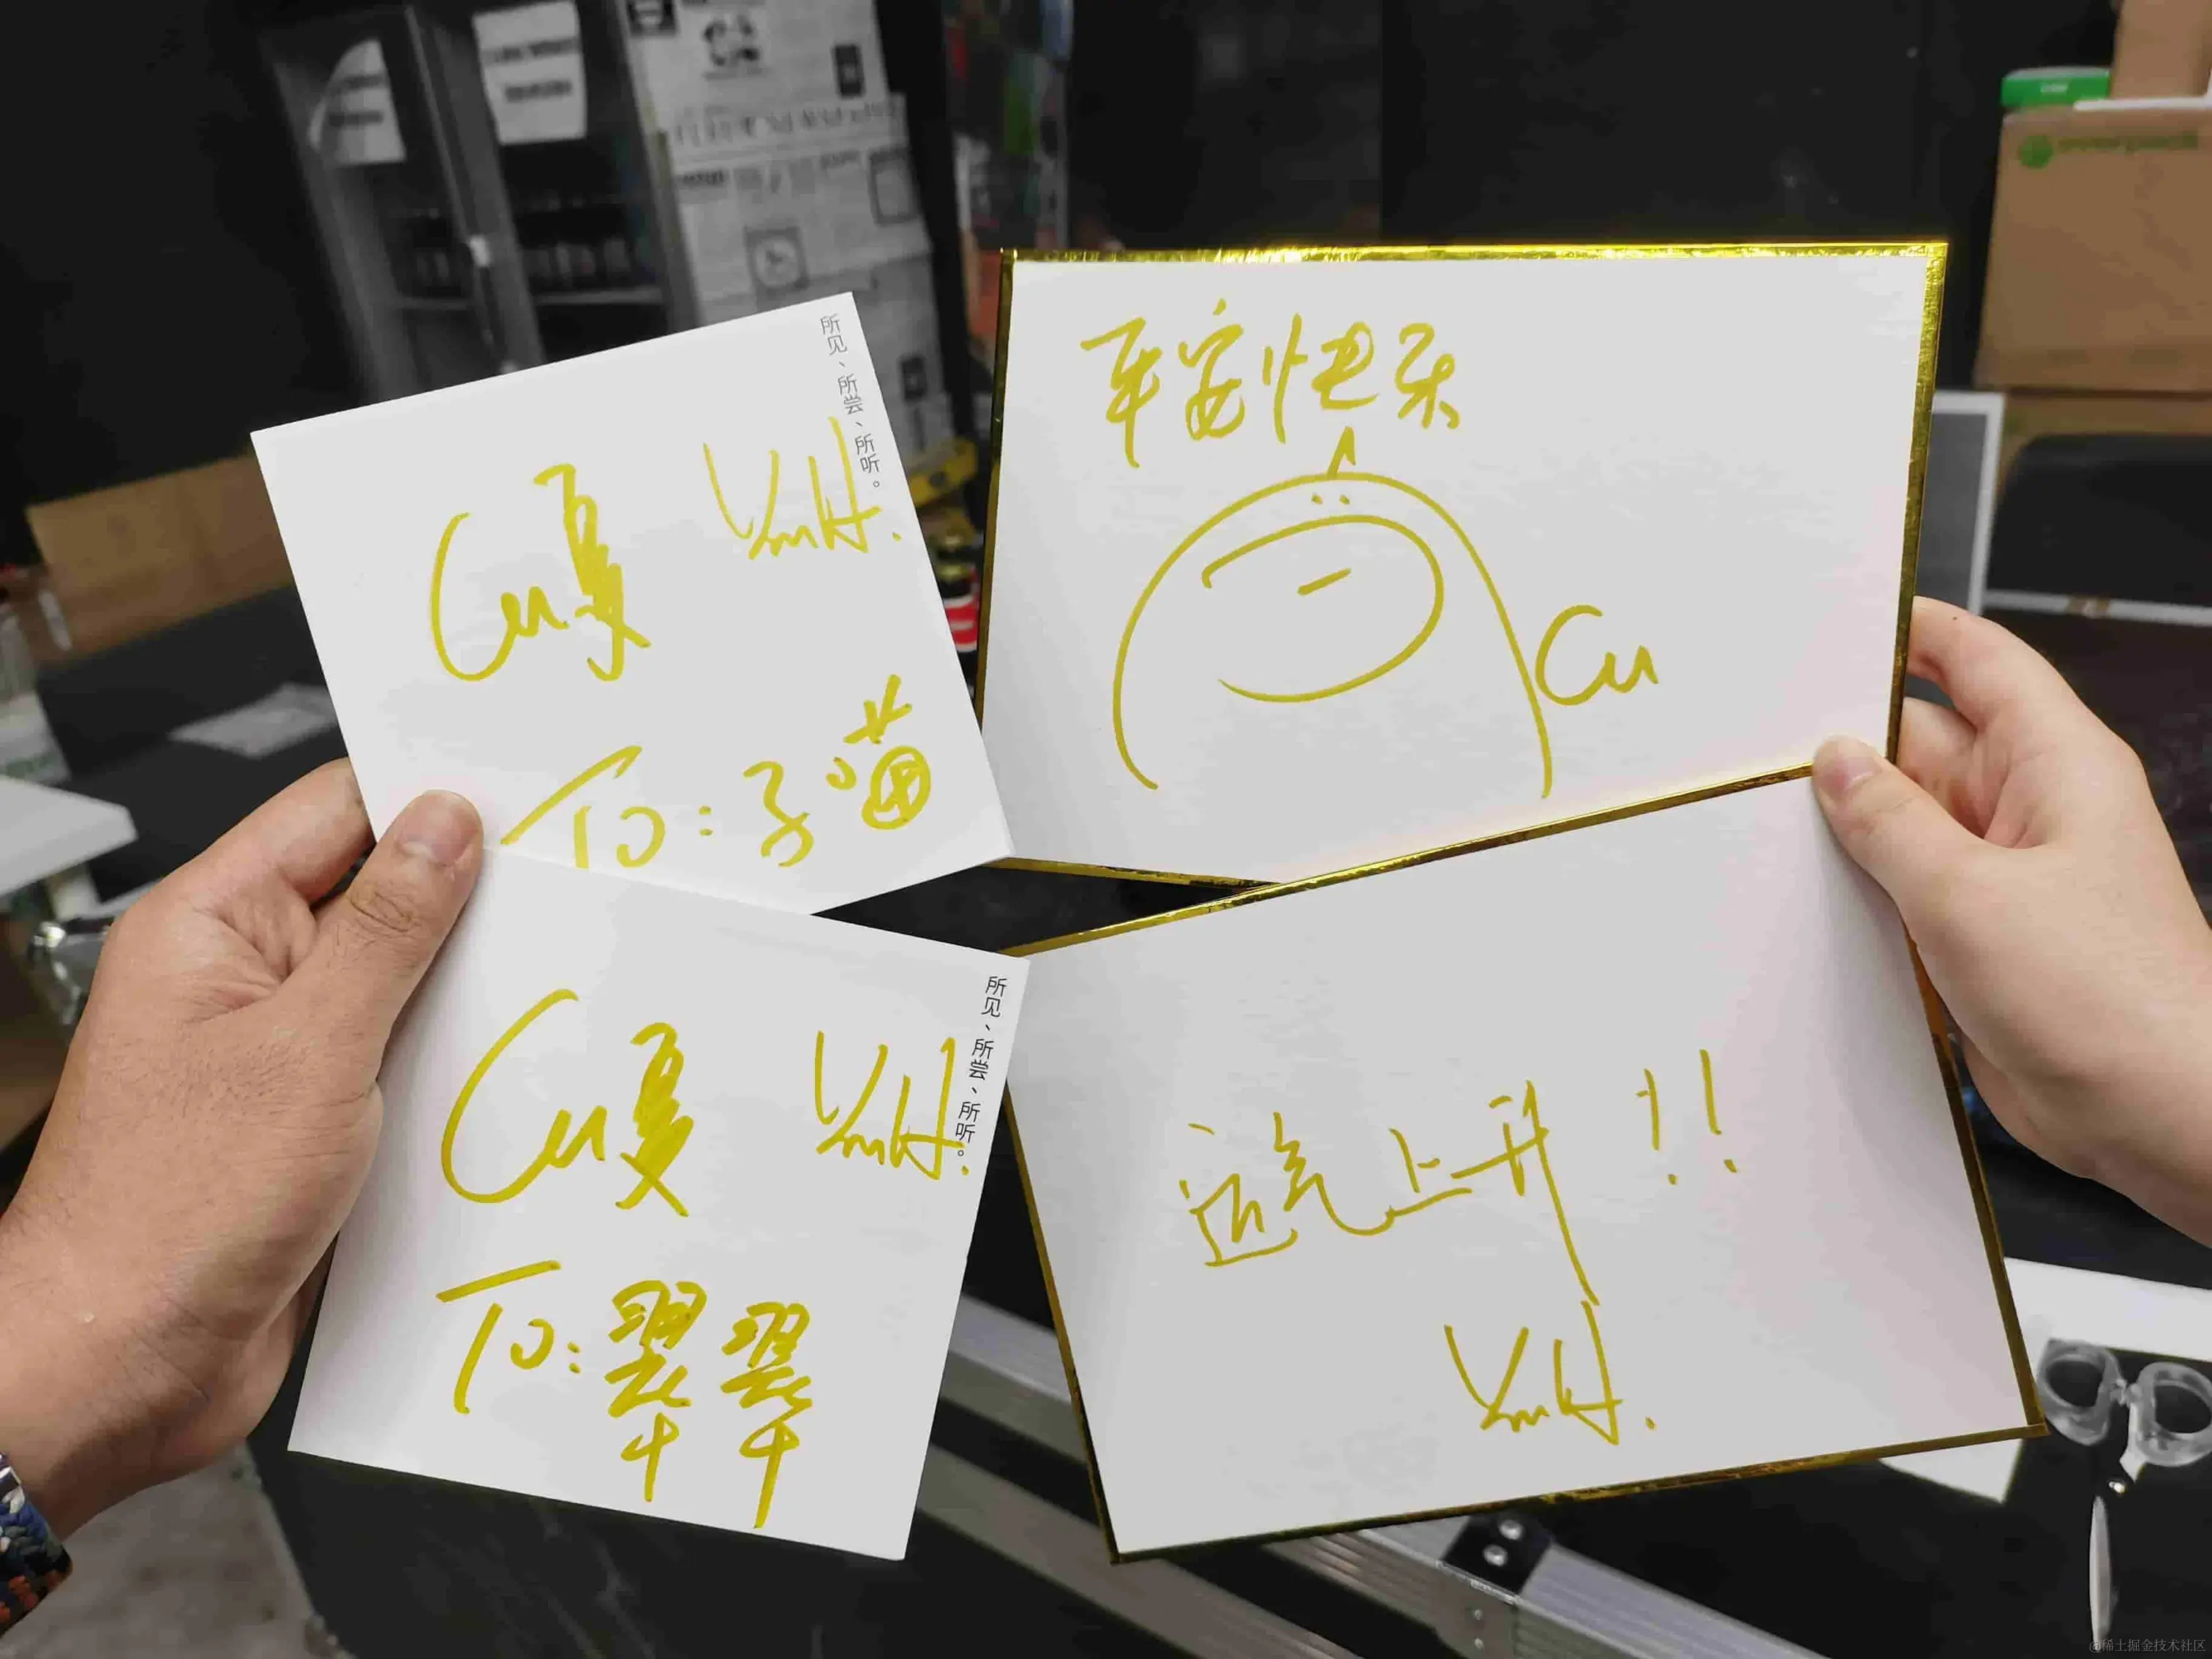 所见、所尝、所听。
Cu夏
YmH.
To:子喵
平安快乐
Cu
所见、所尝、所听。
Cu夏
YmH.
To:翠翠
运气上升!!
YmH.
@稀土掘金技术社区